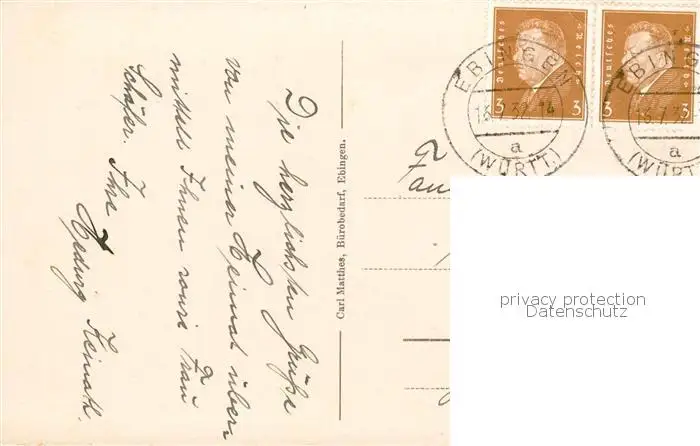 Die herzlichsten Grüße
von meiner Heimat über-
mittelt Ihnen sowie Frau
Schäfer. Ihre
Hedwig Keinath.
Carl Matthes, Bürobedarf, Ebingen.
Deutsches Reich
3 3
Deutsches Reich
3 3
EBINGEN
16.7.32. 14
a
(WÜRTT.)
EBINGEN
16.7.32
a
(WÜRTT.
privacy protection
Datenschutz